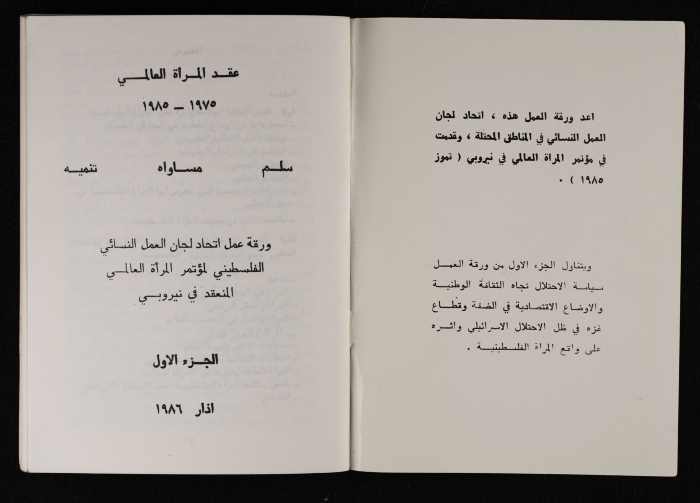 اعد ورقة العمل هذه ، اتحاد لجان
العمل النسائي في المناطق المحتلة ، وقدمت
في مؤتمر المراة العالمي في نيروبي ( تموز
١٩٨٥ ) .
ويتناول الجزء الاول من ورقة العمل
سياسة الاحتلال تجاه الثقافة الوطنية
والاوضاع الاقتصادية في الضفة وقطاع
غزه في ظل الاحتلال الاسرائيلي واثره
على واقع المراة الفلسطينية .
عقد المرأة العالمي
١٩٧٥ - ١٩٨٥
سلم مساواه تنميه
ورقة عمل اتحاد لجان العمل النسائي
الفلسطيني لمؤتمر المرأة العالمي
المنعقد في نيروبي
الجزء الاول
اذار ١٩٨٦